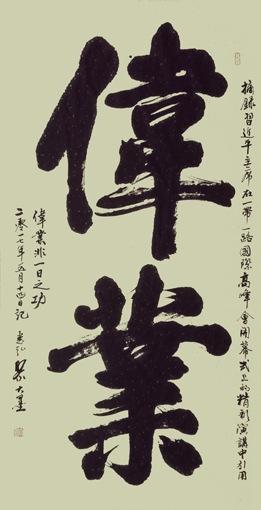 摘錄習近平主席在一帶一路國際高峰會開幕式上的精彩演講中引用
偉業
偉業非一日之功
二零一七年五月十四日記